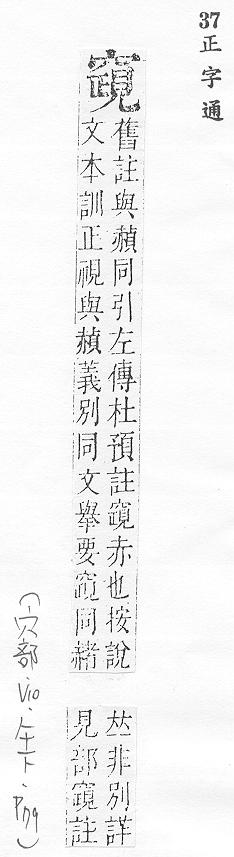 37 正字通
竀
舊註與赬同引左傳杜預註竀赤也按說
文本訓正視與赬義別同文舉要竀同緒
𠀤非別詳
見部竀註
(穴部.V10.午下.P79)